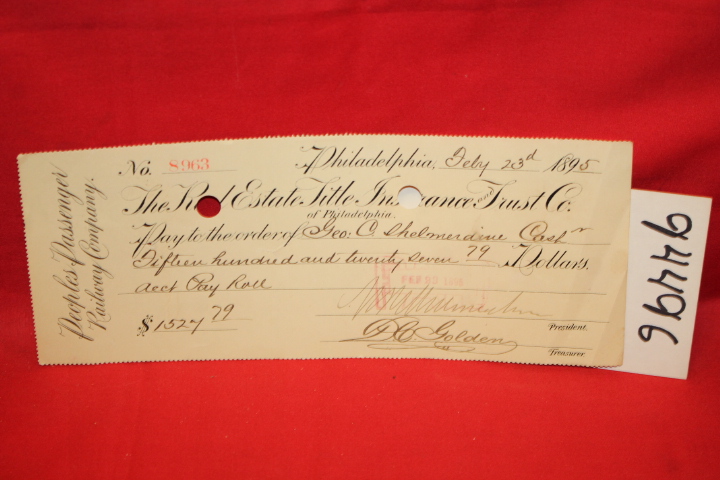 Peoples Passenger
Railway Company.
No. 8963 Philadelphia, Feby 23d 1895
The Real Estate Title Insurance and Trust Co.
of Philadelphia.
Pay to the order of Geo. C. Shelmerdine Cashr
Fifteen hundred and twenty seven 79 Dollars.
acct Pay Roll
$1527 79
President.
Golden
Treasurer
94496